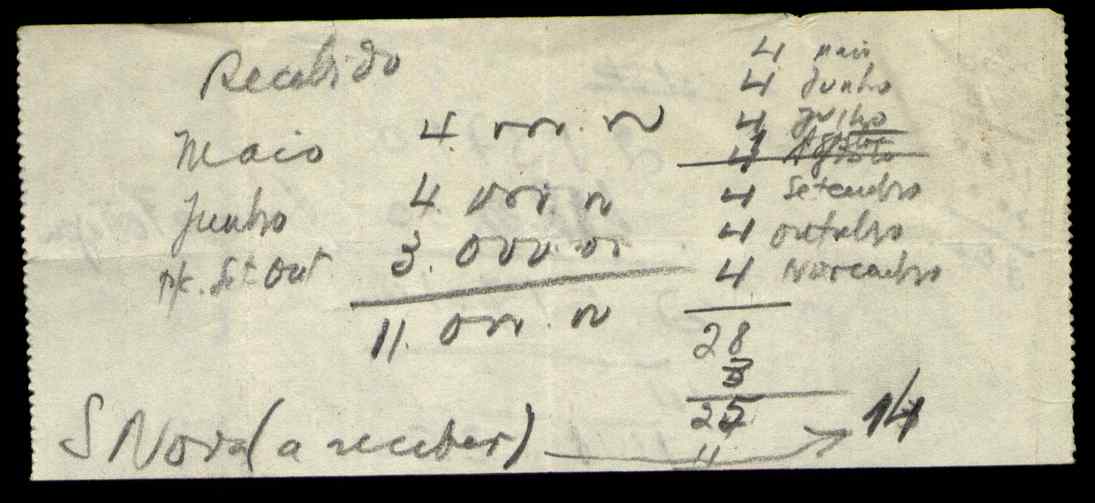 Recebido
Maio 4.000.00
Junho 4.000.00
p/c. Set-Out 3.000.00
11.000.00
4 Maio
4 Junho
4 Julho
4 Agosto
4 Setembro
4 Outubro
4 Novembro
28
3
25
11
S Nova (a receber) 14